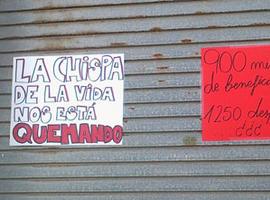 LA CHISPA
DE LA VIDA
NOS ESTÁ
QUEMANDO
900 mi
de benefic
1250 des